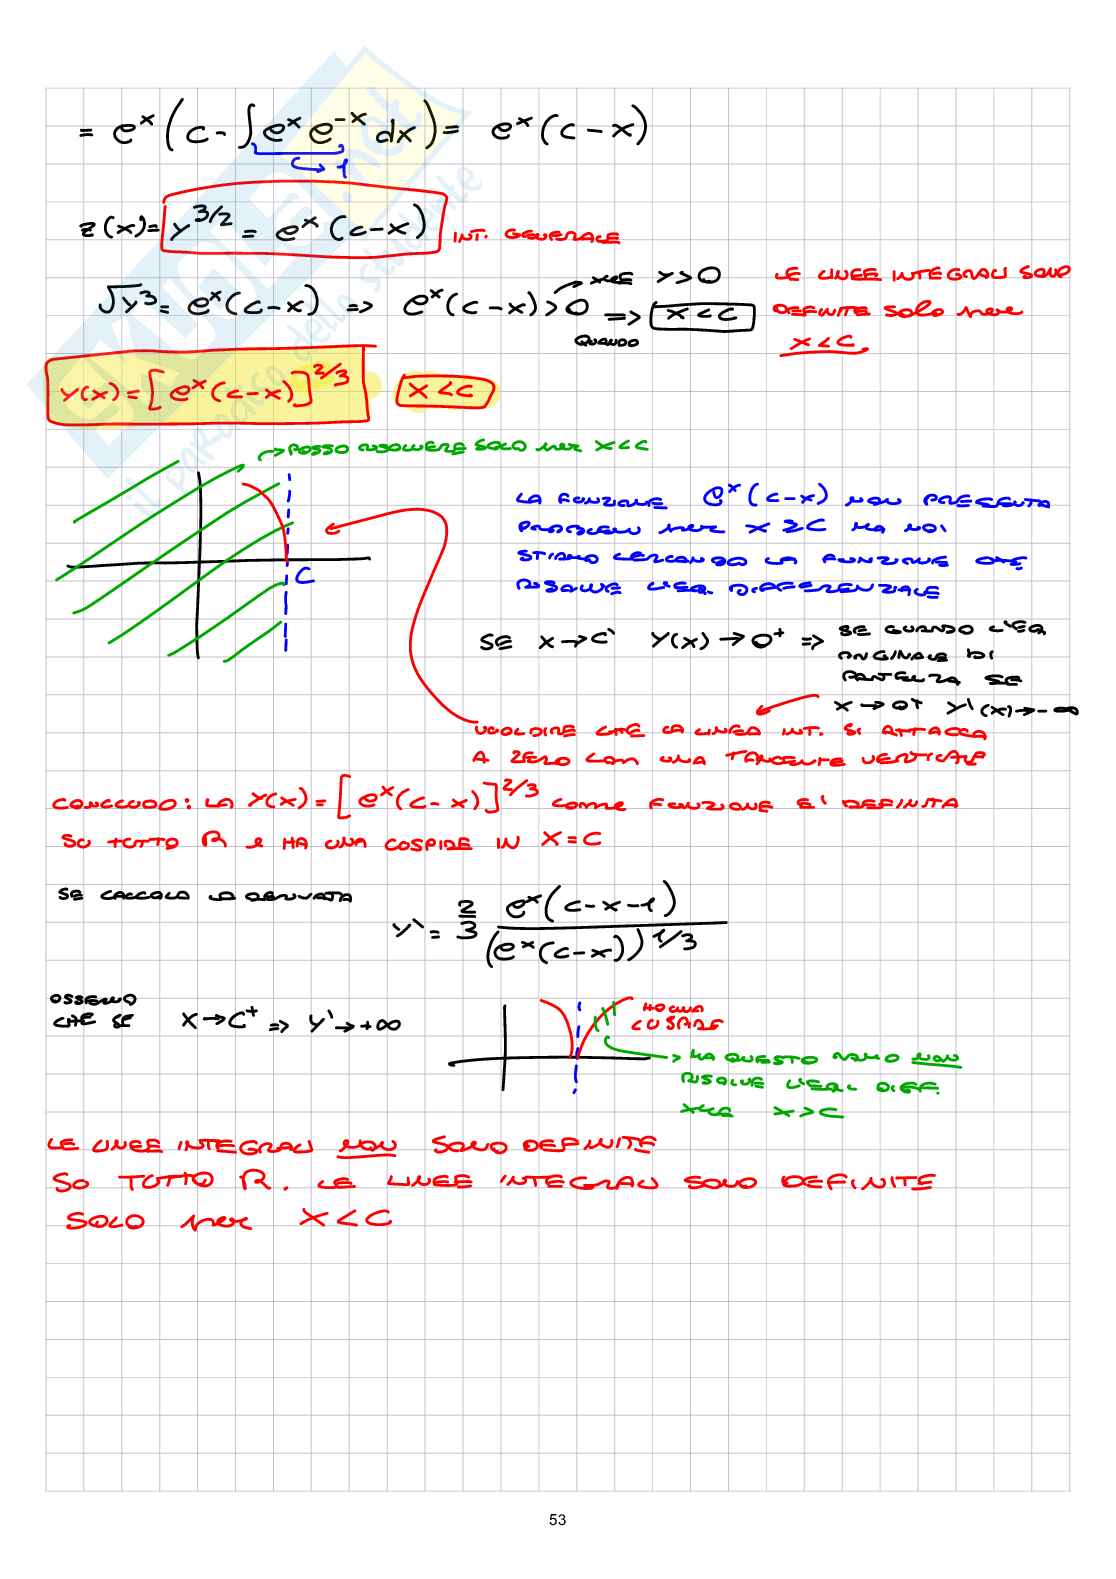 = e^x (c - ∫ e^x e^-x dx) = e^x (c - x)
↳ 1
z(x) = y^3/2 = e^x (c-x) INT. GENERALE
√y³ = e^x (c-x) => e^x (c-x) > 0 QUANDO => x < c
→ perché y > 0
LE LINEE INTEGRALI SONO
DEFINITE SOLO per
x < c
y(x) = [e^x (c-x)]^2/3 x < c
→ POSSO RISOLVERE SOLO per x < c
C
LA FUNZIONE e^x (c-x) NON PRESENTA
PROBLEMI per x ≥ c MA NOI
STIAMO CERCANDO LA FUNZIONE CHE
RISOLVE L'EQ. DIFFERENZIALE
SE x → c⁻ y(x) → 0⁺ => SE GUARDO L'EQ.
ORIGINALE DI
PARTENZA SE
x → 0⁺ y'(x) → -∞
VUOL DIRE CHE LA LINEA INT. SI ATTACCA
A ZERO CON UNA TANGENTE VERTICALE
CONCLUDO: LA y(x) = [e^x (c-x)]^2/3 come FUNZIONE E' DEFINITA
SU TUTTO R e HA UNA CUSPIDE IN x = c
SE CALCOLO LA DERIVATA
y' = 2/3 e^x (c-x-1) / (e^x (c-x))^1/3
OSSERVO
CHE SE x → c⁺ => y' → +∞
HO UNA
CUSPIDE
→ MA QUESTO RAMO NON
RISOLVE L'EQ. DIFF.
per x > c
LE LINEE INTEGRALI NON SONO DEFINITE
SU TUTTO R. LE LINEE INTEGRALI SONO DEFINITE
SOLO per x < c
53